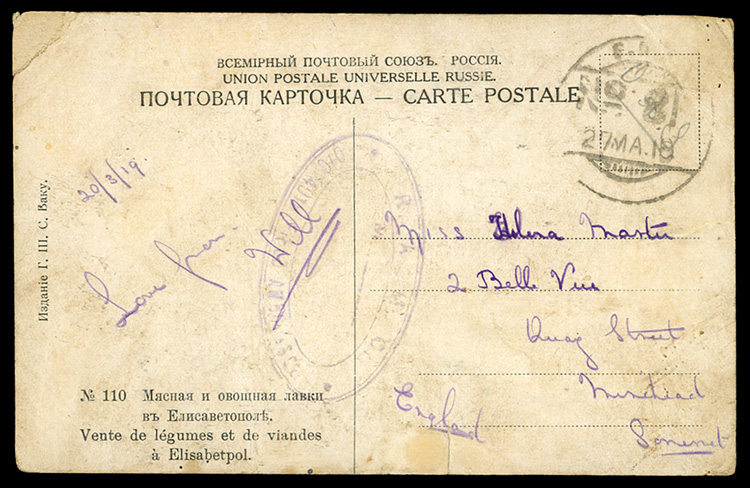 ВСЕМІРНЫЙ ПОЧТОВЫЙ СОЮЗЪ. РОССІЯ.
UNION POSTALE UNIVERSELLE RUSSIE.
ПОЧТОВАЯ КАРТОЧКА — CARTE POSTALE
27 MA. 19
20/3/19
Love from
Will
Miss Helena Martin
2 Belle Vue
Quay Street
Minehead
Somerset
England
Изданіе Г. Ш. С. Баку.
№ 110 Мясная и овощная лавки
въ Елисаветополѣ.
Vente de légumes et de viandes
à Elisabetpol.